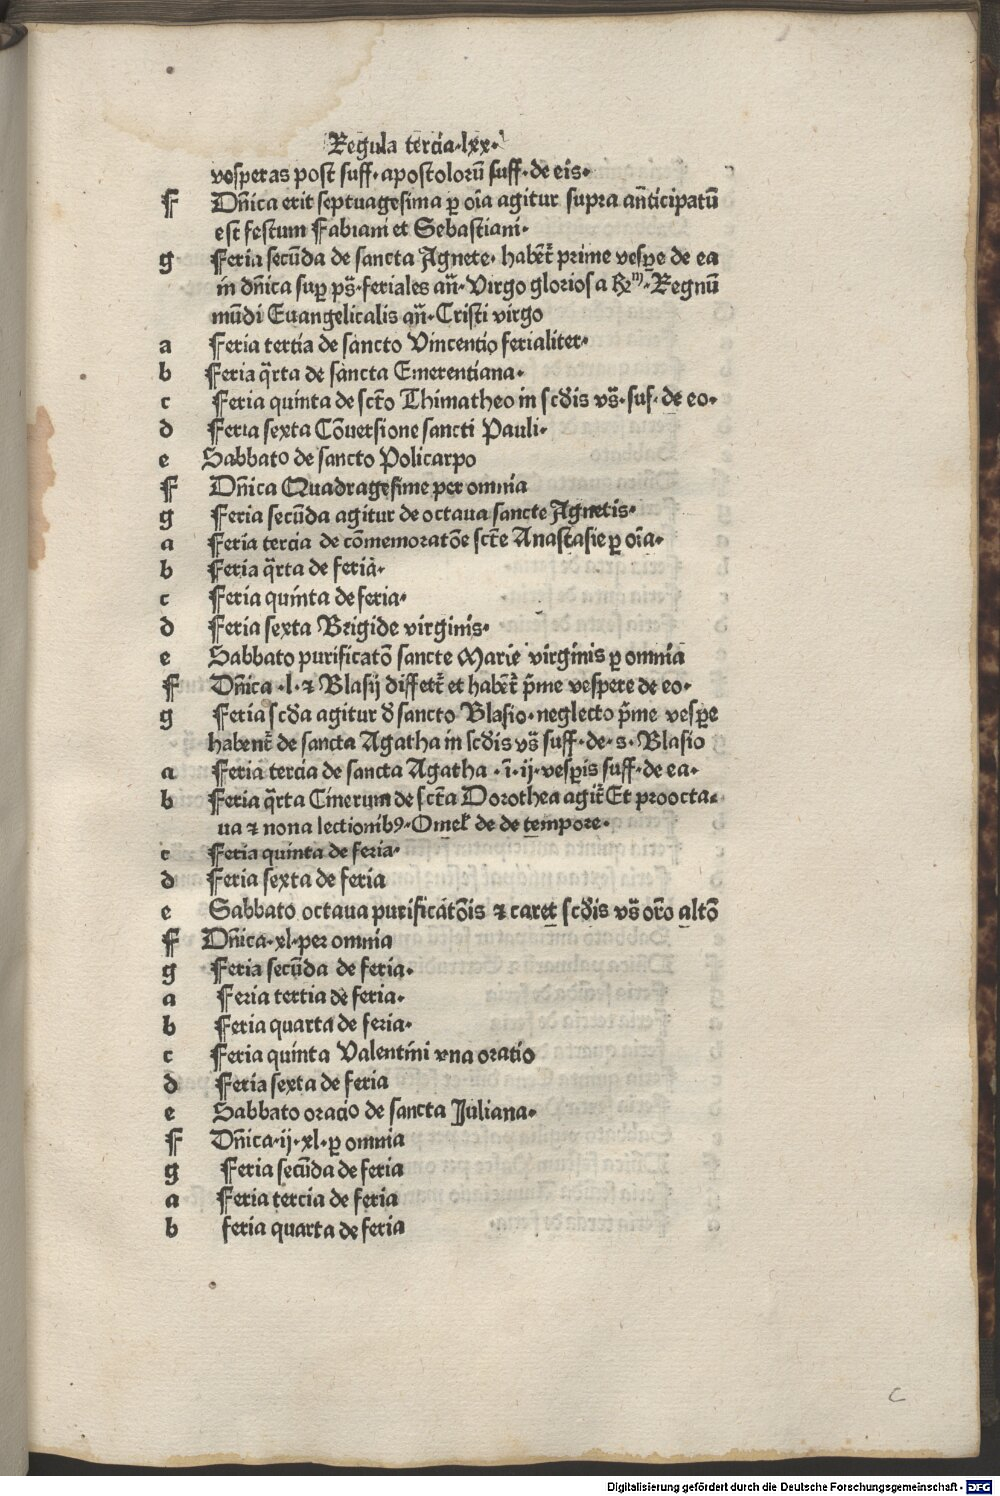 Regula tercia·lxx·
vesperas post suff·apostolorū suff·de eis·
F Dn̄ica erit septuagesima ꝑ oīa agitur supra an̄ticipatū
est festum Fabiani et Sebastiani·
g Feria secūda de sancta Agnete· haben̄t prime vesꝑe de ea
in dn̄ica suꝑ ps̄·feriales an̄·Virgo gloriosa ·Regnū
mūdi Euangelicalis an̄·Cristi virgo
a Feria tertia de sancto Vincentio ferialiter·
b Feria q̄rta de sancta Emerentiana·
c Feria quinta de scto Thimatheo in scd̄is vs̄·suf·de eo·
d Feria sexta Cōuersione sancti Pauli·
e Sabbato de sancto Policarpo
F Dn̄ica Quadragesime per omnia
g Feria secūda agitur de octaua sancte Agnetis·
a Feria tercia de cōmemoratōe scte Anastasie ꝑ oīa·
b Feria q̄rta de feria·
c Feria quinta de feria·
d Feria sexta Brigide virginis·
e Sabbato purificatō sancte Marie virginis ꝑ omnia
F Dn̄ica ·l·⁊ Blasij diffet̄ et haben̄t p̄me vespere de eo·
g Feria scd̄a agitur d̄ sancto Blasio·neglecto p̄me vesꝑe
habent̄ de sancta Agatha in scd̄is vs̄ suff·de·s·Blasio
a Feria tercia de sancta Agatha ·ī·ij·vesꝑis suff·de ea·
b Feria q̄rta Cinerum de sct̄a Dorothea agit̄ Et proocta-
ua ⁊ nona lectionibꝯ·Omel̄ de de tempore·
c Feria quinta de feria·
d Feria sexta de feria
e Sabbato octaua purificatōis ⁊ caret scd̄is vs̄ or̄o altō
F Dn̄ica·xl·per omnia
g Feria secūda de feria·
a Feria tertia de feria·
b Feria quarta de feria·
c Feria quinta Valentini vna oratio
d Feria sexta de feria
e Sabbato oracio de sancta Juliana·
F Dn̄ica·ij·xl·ꝑ omnia
g Feria secūda de feria
a Feria tercia de feria
b feria quarta de feria
c
Digitalisierung gefördert durch die Deutsche Forschungsgemeinschaft - DFG